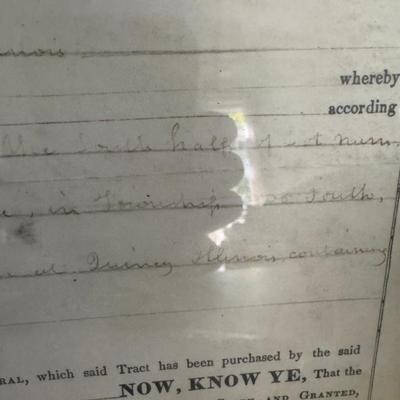 nois
whereby
according
the South half of Lot num-
, in Township two South,
at Quincy Illinois, containing
RAL, which said Tract has been purchased by the said
NOW, KNOW YE, That the
AND GRANTED,